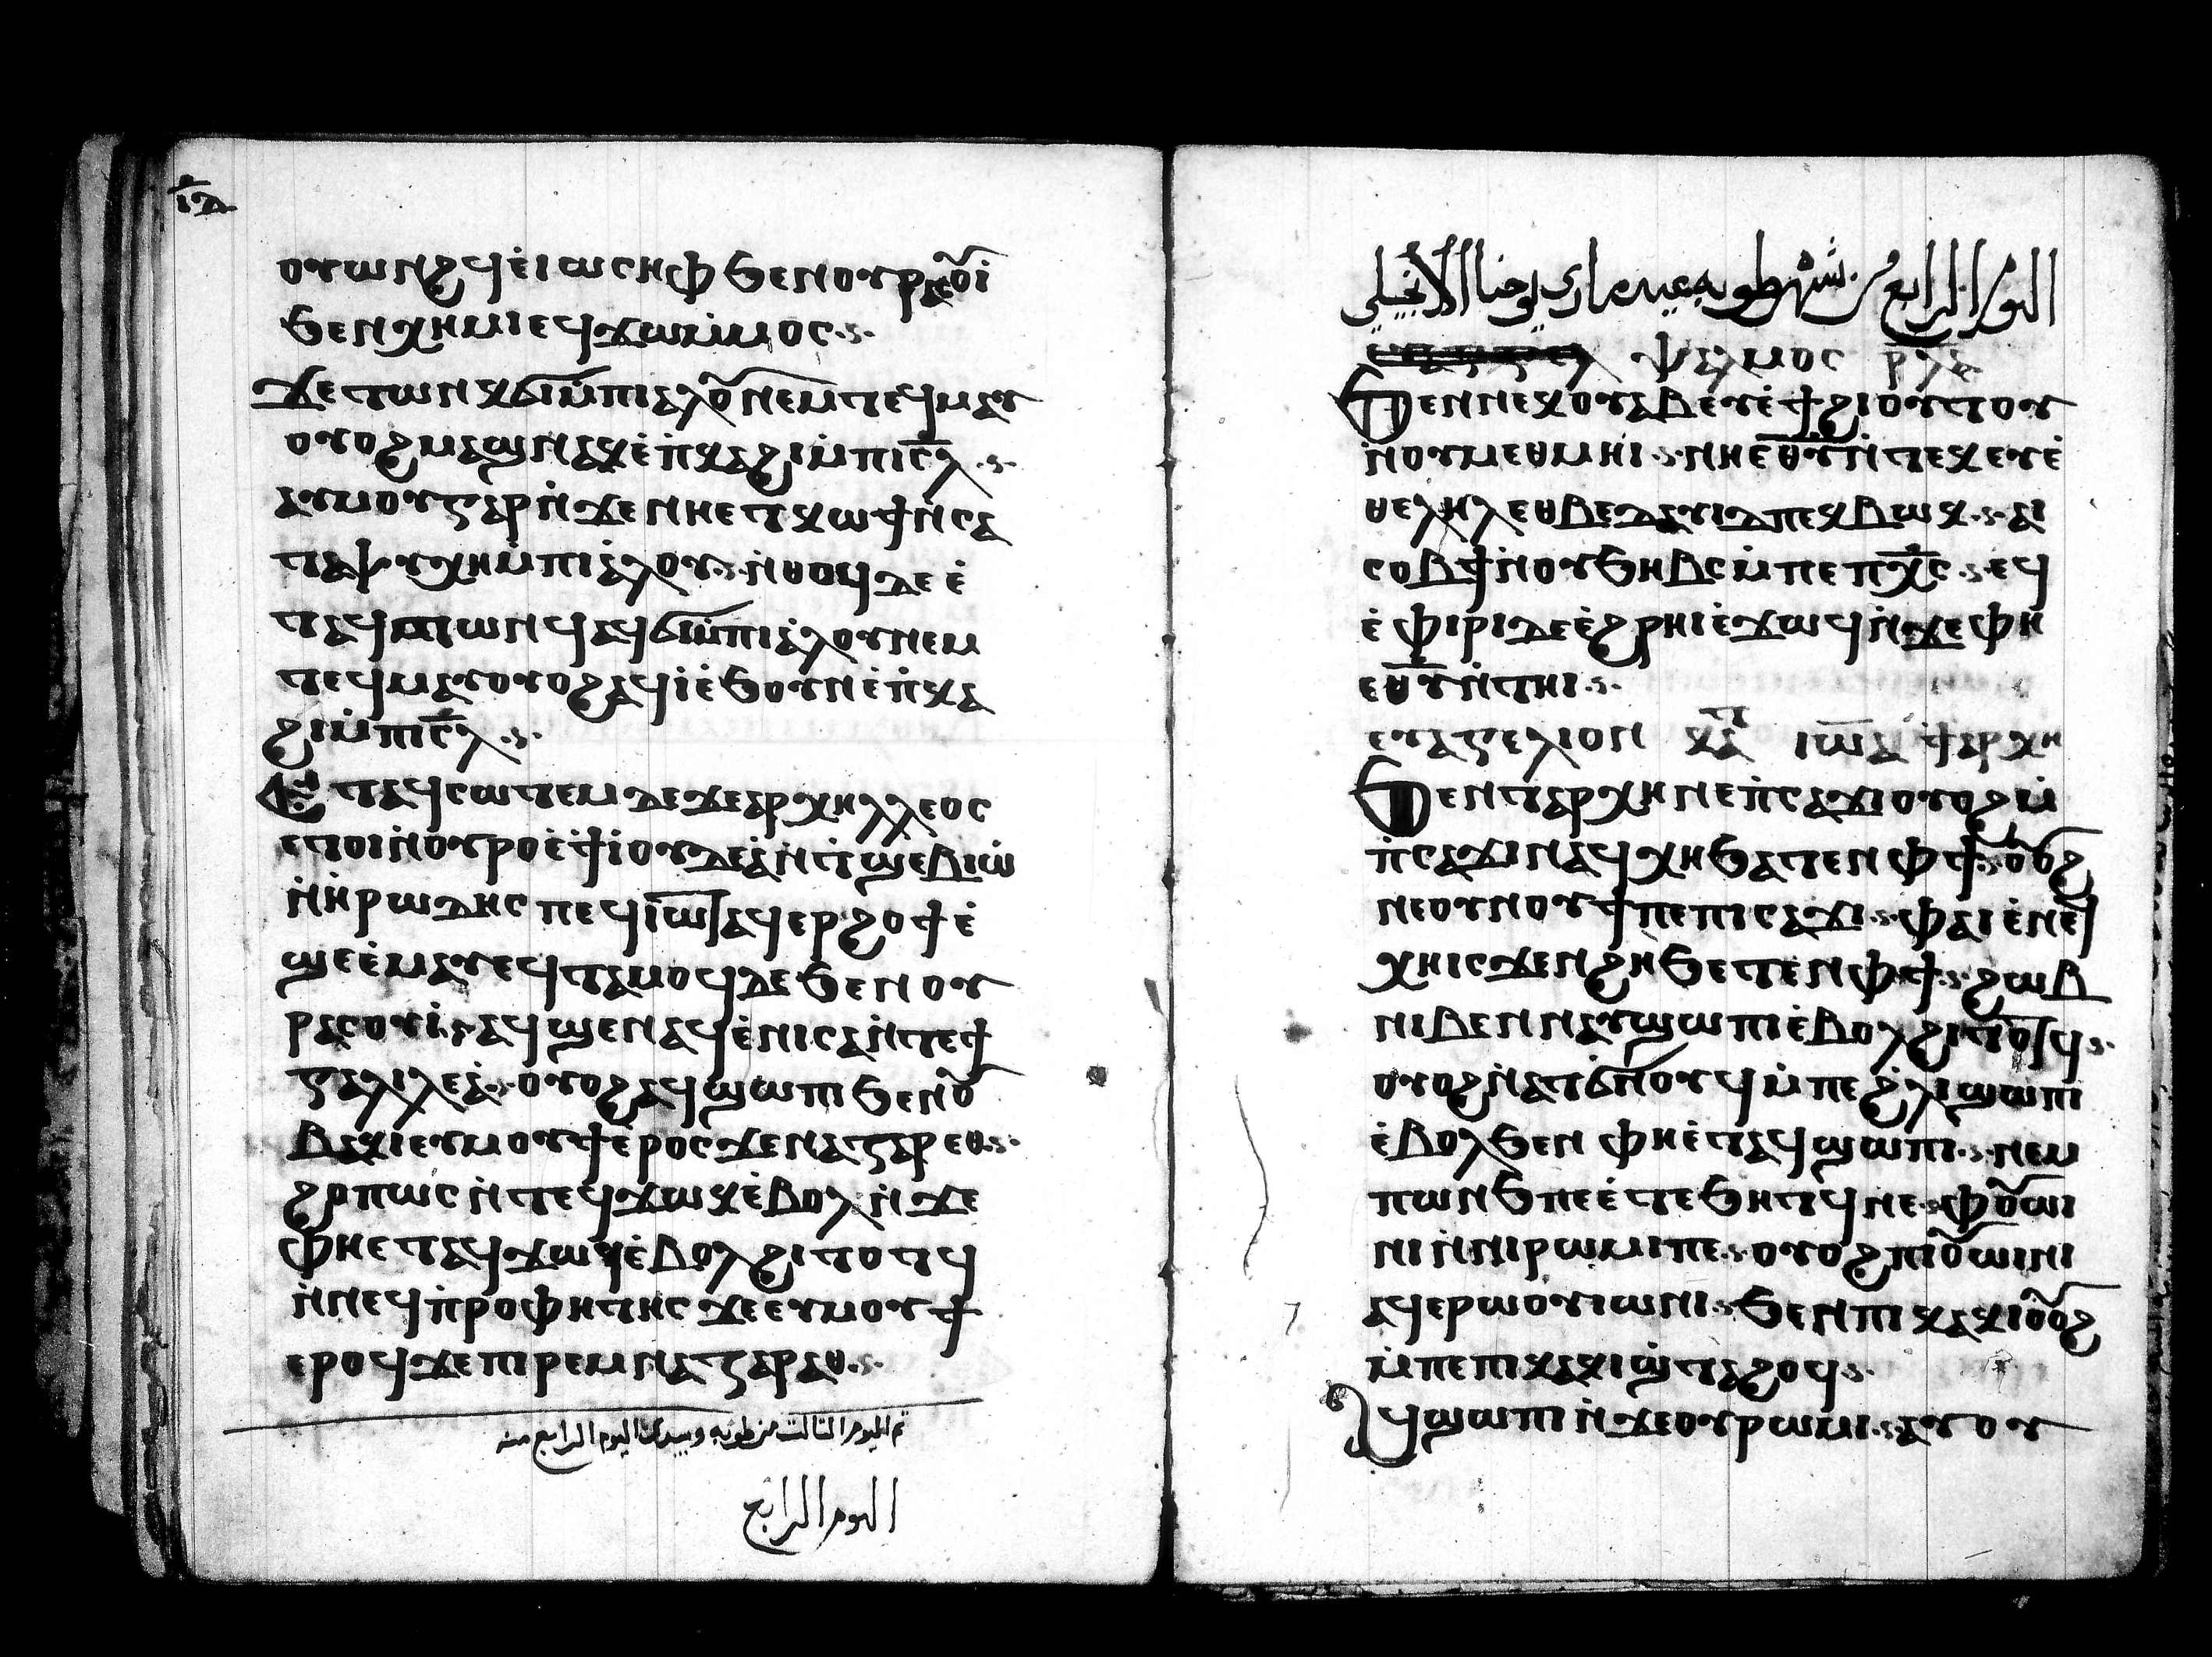 ⲓ̅ⲇ̅
ⲟⲩⲱⲛϩϥⲉ̀ⲓⲱⲥⲏⲫ ϧⲉⲛⲟⲩⲣⲁⲥⲟ̅ⲓ̀
ϧⲉⲛⲭⲏⲙⲓ ⲉϥϫⲱⲙ̀ⲙⲟⲥ
ϫⲉⲧⲱⲛⲕ ϭⲓⲙ̀ⲡⲓⲁⲗⲟ̅ ⲛⲉⲙⲧⲉϥⲙⲁⲩ
ⲟⲩⲟϩ ⲙⲁϣⲛⲁⲕ ⲉ̀ⲡ̀ⲕⲁϩⲓ ⲙ̀ⲡⲓⲥ̅ⲗ
ⲁⲩⲙⲟⲩ ⲅⲁⲣ ⲛ̀ϫⲉⲛⲏⲉⲧⲕⲱϯ ⲛ̀ⲥⲁ
ⲧⲁⲯⲩⲭⲏ ⲙ̀ⲡⲓⲁ̀ⲗⲟⲩ ⲛ̀ⲑⲟϥ ⲇⲉ ⲉ̀
ⲧⲁϥⲧⲱⲛϥ ⲁϥϭⲓⲙ̀ⲡⲓⲁ̀ⲗⲟⲩ ⲛⲉⲙ
ⲧⲉϥⲙⲁⲩ ⲟⲩⲟϩ ⲁϥⲓ̀ ⲉ̀ϧⲟⲩⲛ ⲉ̀ⲡ̀ⲕⲁ
ϩⲓ ⲙ̀ⲡⲓⲥ̅ⲗ
Ⲉⲧⲁϥⲥⲱⲧⲉⲙ ⲇⲉ ϫⲉⲁⲣⲭⲏⲗⲗⲉⲟⲥ
ⲉⲧⲟⲓ ⲛ̀ⲟⲩⲣⲟ ⲉ̀ϯⲓⲟⲩⲇⲉⲁ̀ ⲛ̀ⲧ̀ϣⲉⲃⲓⲱ̀
ⲛ̀ⲏ̀ⲣⲱⲇⲏⲥ ⲡⲉϥⲓⲱ̅ⲧ ⲁϥⲉⲣϩⲟϯ ⲉ̀
ϣⲉ ⲉ̀ⲙⲁⲩ ⲉϥⲧⲁⲙⲟϥ ⲇⲉ ϧⲉⲛ ⲟⲩ
ⲣⲁⲥⲟⲩⲓ̀ ⲁϥϣⲉⲛⲁϥ ⲉ̀ⲛⲓⲥⲁ ⲛ̀ⲧⲉϯ
ⲅⲁⲗⲓⲗⲉⲁ̀ ⲟⲩⲟϩ ⲁϥϣⲱⲡⲓ ϧⲉⲛⲟ̅
ⲃⲁⲕⲓ ⲉⲩⲙⲟⲩϯ ⲉⲣⲟⲥ ϫⲉⲛⲁⲍⲁⲣⲉⲑ
ϩⲟⲡⲱⲥ ⲛ̀ⲧⲉϥϫⲱⲕ ⲉ̀ⲃⲟⲗ ⲛ̀ϫⲉ
ⲫⲏⲉⲧⲁϥϫⲱϥ ⲉ̀ⲃⲟⲗϩⲓⲧⲟⲧϥ
ⲛ̀ⲛⲉϥⲡ̀ⲣⲟⲫⲏⲧⲏⲥ ϫⲉⲉⲩⲙⲟⲩϯ
ⲉⲣⲟϥ ϫⲉⲡⲓⲣⲉⲙⲛⲁⲍⲁⲣⲁⲑ
تم اليوم الثالث من طوبه وبيدك اليوم الرابع منه
اليوم الرابع
اليوم الرابع من شهر طوبه عيد ماري يوحنا الانجيلي
ⲯⲁⲗⲙⲟⲥ ⲣ̅ⲗ̅ⲁ̅
Ϧⲉⲛⲛⲉⲕⲟⲩⲁⲃ ⲉⲩⲉ̀ϯϩⲓⲟⲩⲧⲟⲩ
ⲛ̀ⲟⲩⲙⲉⲑⲙⲏⲓ ⲛⲏⲉ̅ⲑ̅ⲩ̅ ⲛ̀ⲧⲉⲕ ⲉⲩⲉ̀
ⲑⲉⲗⲏⲗ ⲉⲑⲃⲉ ⲇⲁⲩⲓⲇ ⲡⲉⲕⲃⲱⲕ ⲁⲓ
ⲥⲟⲃϯ ⲛ̀ⲟⲩϧⲏⲃⲥ ⲙ̀ⲡⲉⲡⲭ̅ⲥ ⲉϥ
ⲉ̀ⲫⲓⲣⲓ ⲇⲉ ⲉ̀ϩⲣⲏⲓ ⲉ̀ϫⲱϥ ⲛ̀ϫⲉⲫⲏ
ⲉ̅ⲑ̅ⲩ̅ ⲛ̀ⲧⲏⲓ
ⲉⲩⲁⲅⲅⲉⲗⲓⲟⲛ ⲕⲁⲧ ⲓⲱ̅ⲁ ϯⲁⲣⲭⲏ
Ϧⲉⲛⲧⲁⲣⲭⲏ ⲛⲉⲡ̀ⲥⲁϫⲓ ⲟⲩⲟϩ ⲙ̀
ⲡ̀ⲥⲁϫⲓ ⲛⲁϥⲭⲏ ϧⲁⲧⲉⲛ ⲫϯ ⲟ̅ⲟϩ
ⲛⲉⲟⲩⲛⲟⲩϯ ⲡⲉⲡⲓⲥⲁϫⲓ ⲫⲁⲓ ⲉ̀ⲛⲉϥ
ⲭⲏ ⲓⲥϫⲉⲛϩⲏ ϧⲉⲧⲉⲛ ⲫϯ ϩⲱⲃ
ⲛⲓⲃⲉⲛ ⲛⲁⲩϣⲱⲡⲓ ⲉ̀ⲃⲟⲗϩⲓⲧⲟⲧϥ
ⲟⲩⲟϩ ⲛ̀ⲁⲧϭⲛⲟⲩϥ ⲙ̀ⲡⲉϩ̀ⲗⲓ ϣⲱⲡⲓ
ⲉ̀ⲃⲟⲗϧⲉⲛ ⲫⲏⲉ̀ⲧⲁϥϣⲱⲡⲓ ⲛⲉⲙ
ⲡⲱⲛϧ ⲡⲉⲉ̀ⲧⲉⲛϧⲏⲧϥ ⲛⲉ ⲫⲟ̅ⲱⲓ
ⲛⲓ ⲛ̀ⲛⲓⲣⲱⲙⲓ ⲡⲉ ⲟⲩⲟϩ ⲡⲓⲟ̅ⲱⲓⲛⲓ
ⲁϥⲉⲣⲱⲟⲩⲓⲱⲛⲓ ϧⲉⲛⲡⲓⲭⲁⲕⲓ ⲟ̅ⲟϩ
ⲙ̀ⲡⲉⲡⲓⲭⲁⲕⲓ ϣ̀ⲧⲁϩⲟϥ
Ⲁϥϣⲱⲡⲓ ⲛ̀ϫⲉⲟⲩⲣⲱⲙⲓ ⲁⲩⲟⲩ